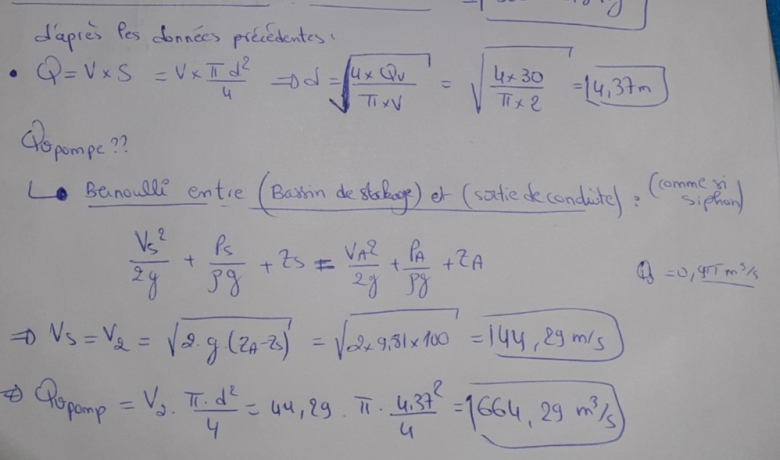 d'après les données précédentes.
• Q = V × S = V × π d²/4 ⇒ d = √(4 × Qv / π × V) = √(4 × 30 / π × 2) = 4,37 m
Qv pompe ??
↳ Bernoulli entre (Bassin de stockage) et (sortie de conduite) : (comme si siphon)
Vs²/2g + Ps/ρg + Zs = VA²/2g + PA/ρg + ZA
⇒ Vs = V2 = √(2.g.(ZA-Zs)) = √(2×9,81×100) = 44,29 m/s
⇒ Qv pomp = V2 . π.d²/4 = 44,29 . π . 4,37²/4 = 664,29 m³/s